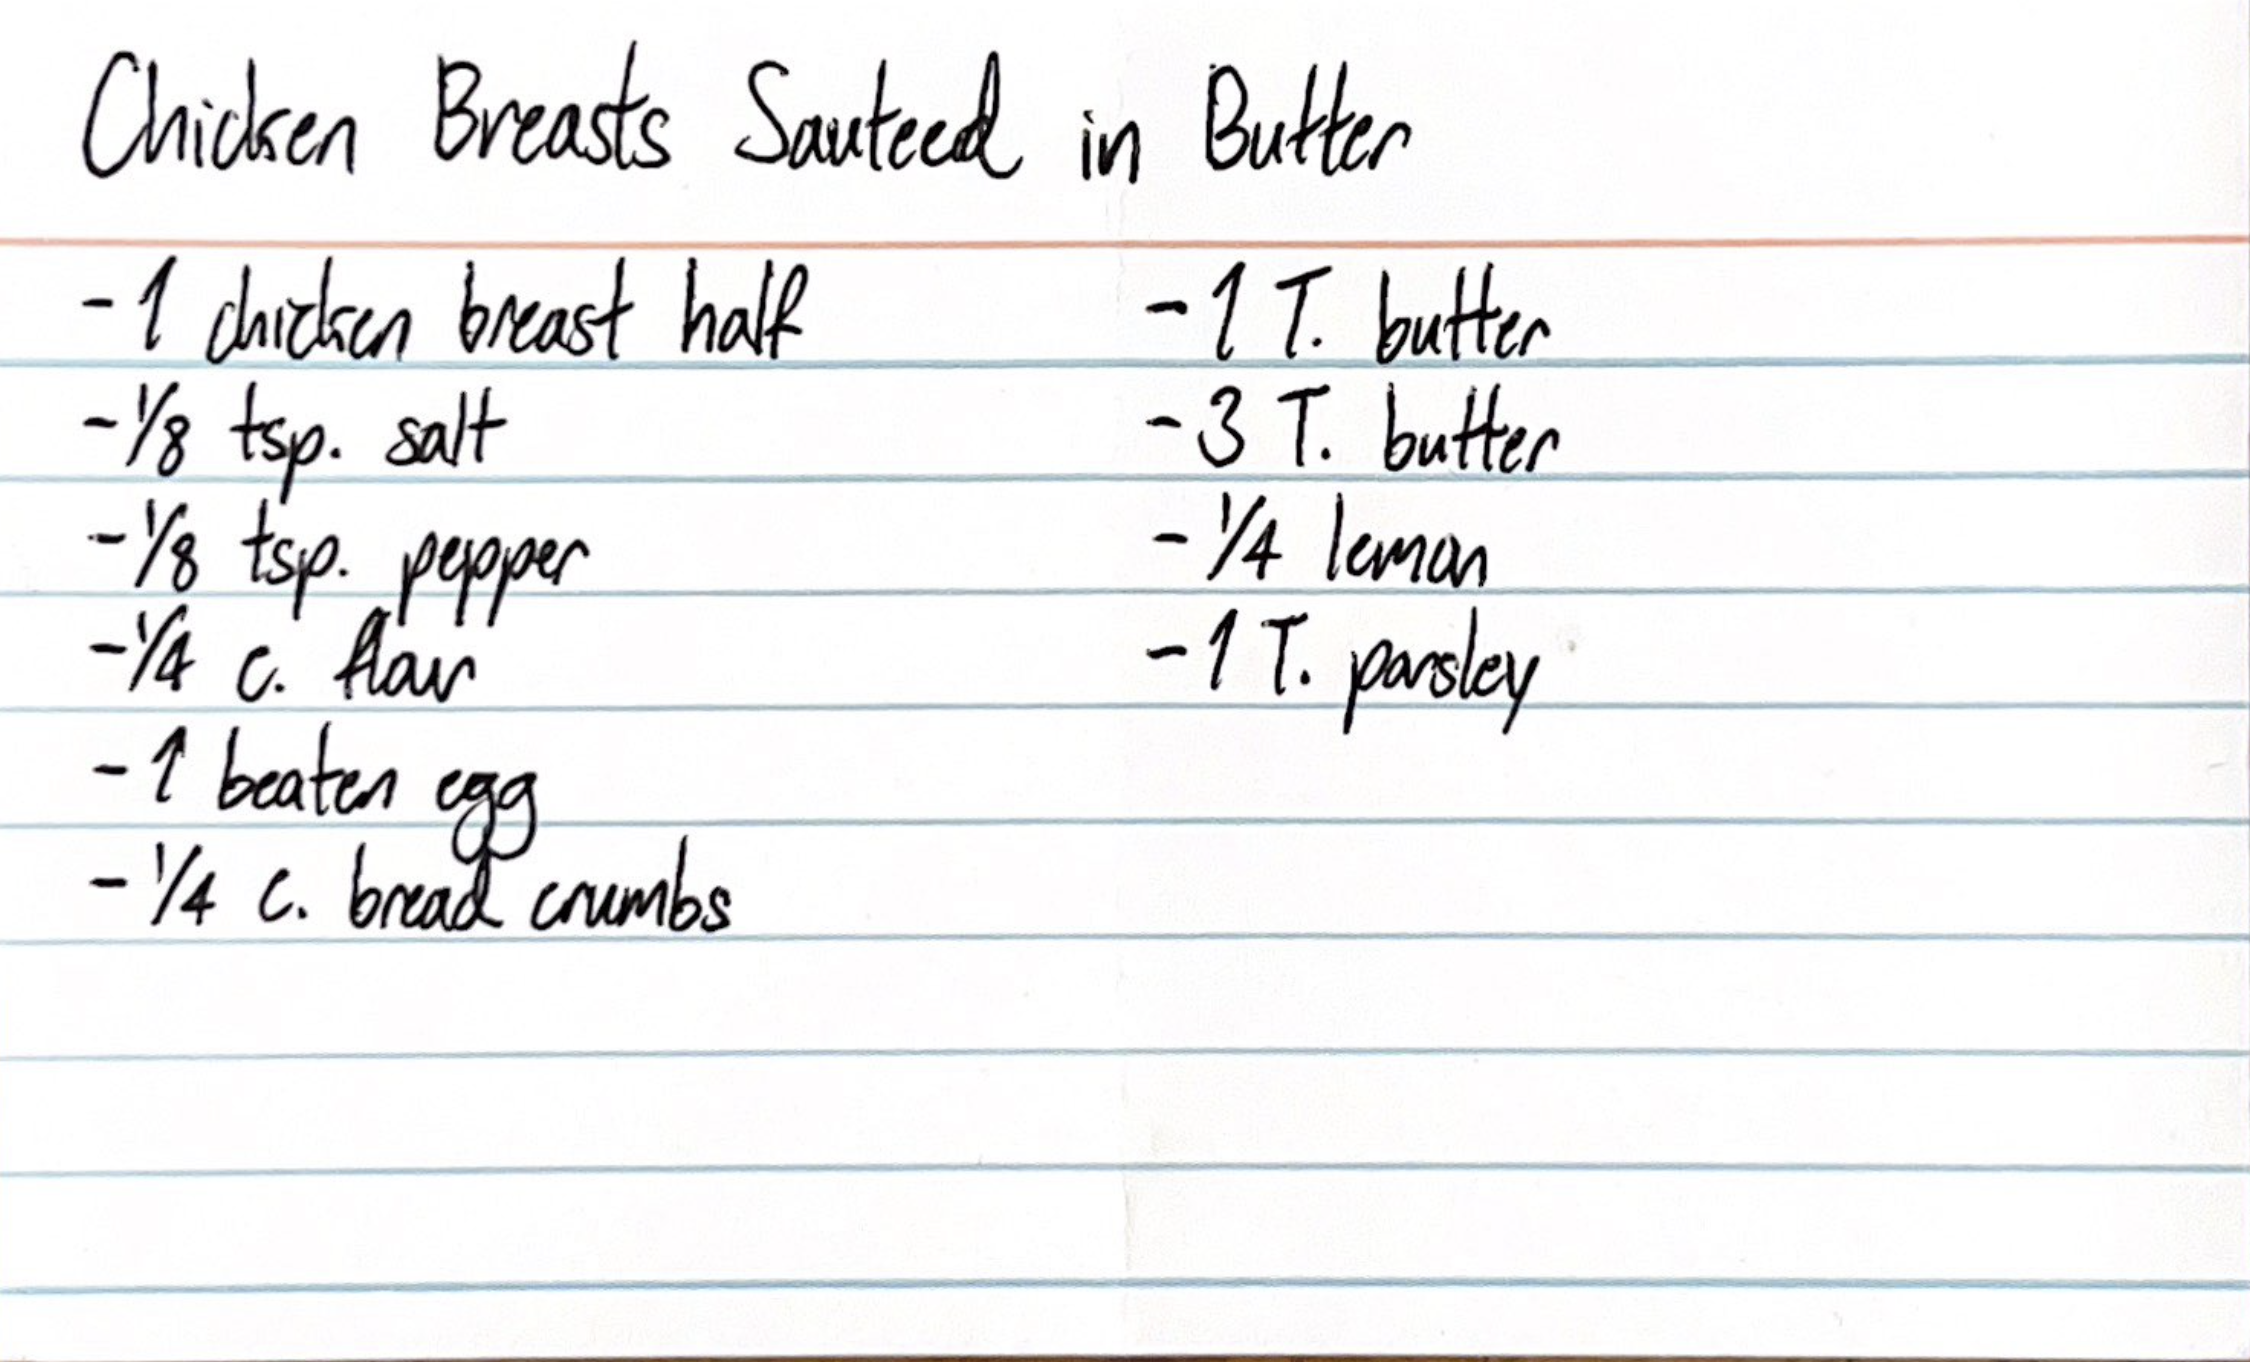 Chicken Breasts Sauteed in Butter
- 1 chicken breast half
- 1/8 tsp. salt
- 1/8 tsp. pepper
- 1/4 c. flour
- 1 beaten egg
- 1/4 c. bread crumbs
- 1 T. butter
- 3 T. butter
- 1/4 lemon
- 1 T. parsley